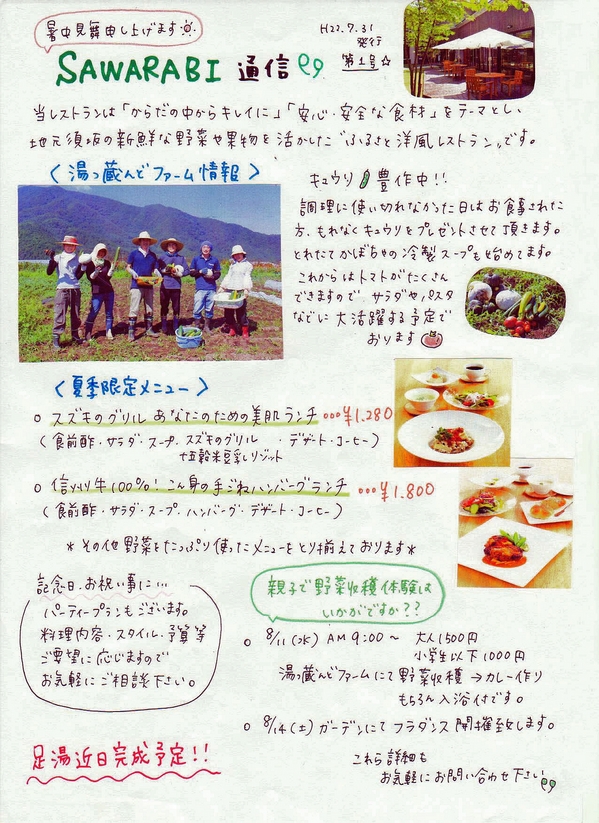 暑中見舞申し上げます
H22.7.31
発行
第1号☆
SAWARABI 通信
当レストランは「からだの中からキレイに」「安心・安全な食材」をテーマとし、
地元須坂の新鮮な野菜や果物を活かした“ふるさと洋風レストラン”です。
〈湯っ蔵んどファーム情報〉
キュウリ 豊作中!!
調理に使い切れなかった日はお食事された
方、もれなくキュウリをプレゼントさせて頂きます。
とれたてかぼちゃの冷製スープも始めてます。
これからはトマトがたくさん
できますので、サラダやパスタ
などに大活躍する予定で
おります
〈夏季限定メニュー〉
○ スズキのグリル あなたのための美肌ランチ …¥1.280
(食前酢・サラダ・スープ・スズキのグリル ・デザート・コーヒー)
十五穀米豆乳リゾット
○ 信州牛100%! こん身の手ごねハンバーグランチ …¥1.800
(食前酢・サラダ・スープ・ハンバーグ・デザート・コーヒー)
*その他野菜をたっぷり使ったメニューをとり揃えております*
記念日、お祝い事に…
パーティープランもございます。
料理内容・スタイル・予算等
ご要望に応じますので
お気軽にご相談下さい。
足湯近日完成予定!!
親子で野菜収穫体験は
いかがですか??
○ 8/11(水) AM 9:00~ 大人1500円
小学生以下1000円
湯っ蔵んどファームにて野菜収穫→カレー作り
もちろん入浴付です。
○ 8/14(土) ガーデンにてフラダンス開催致します。
これら詳細も
お気軽にお問い合わせ下さい